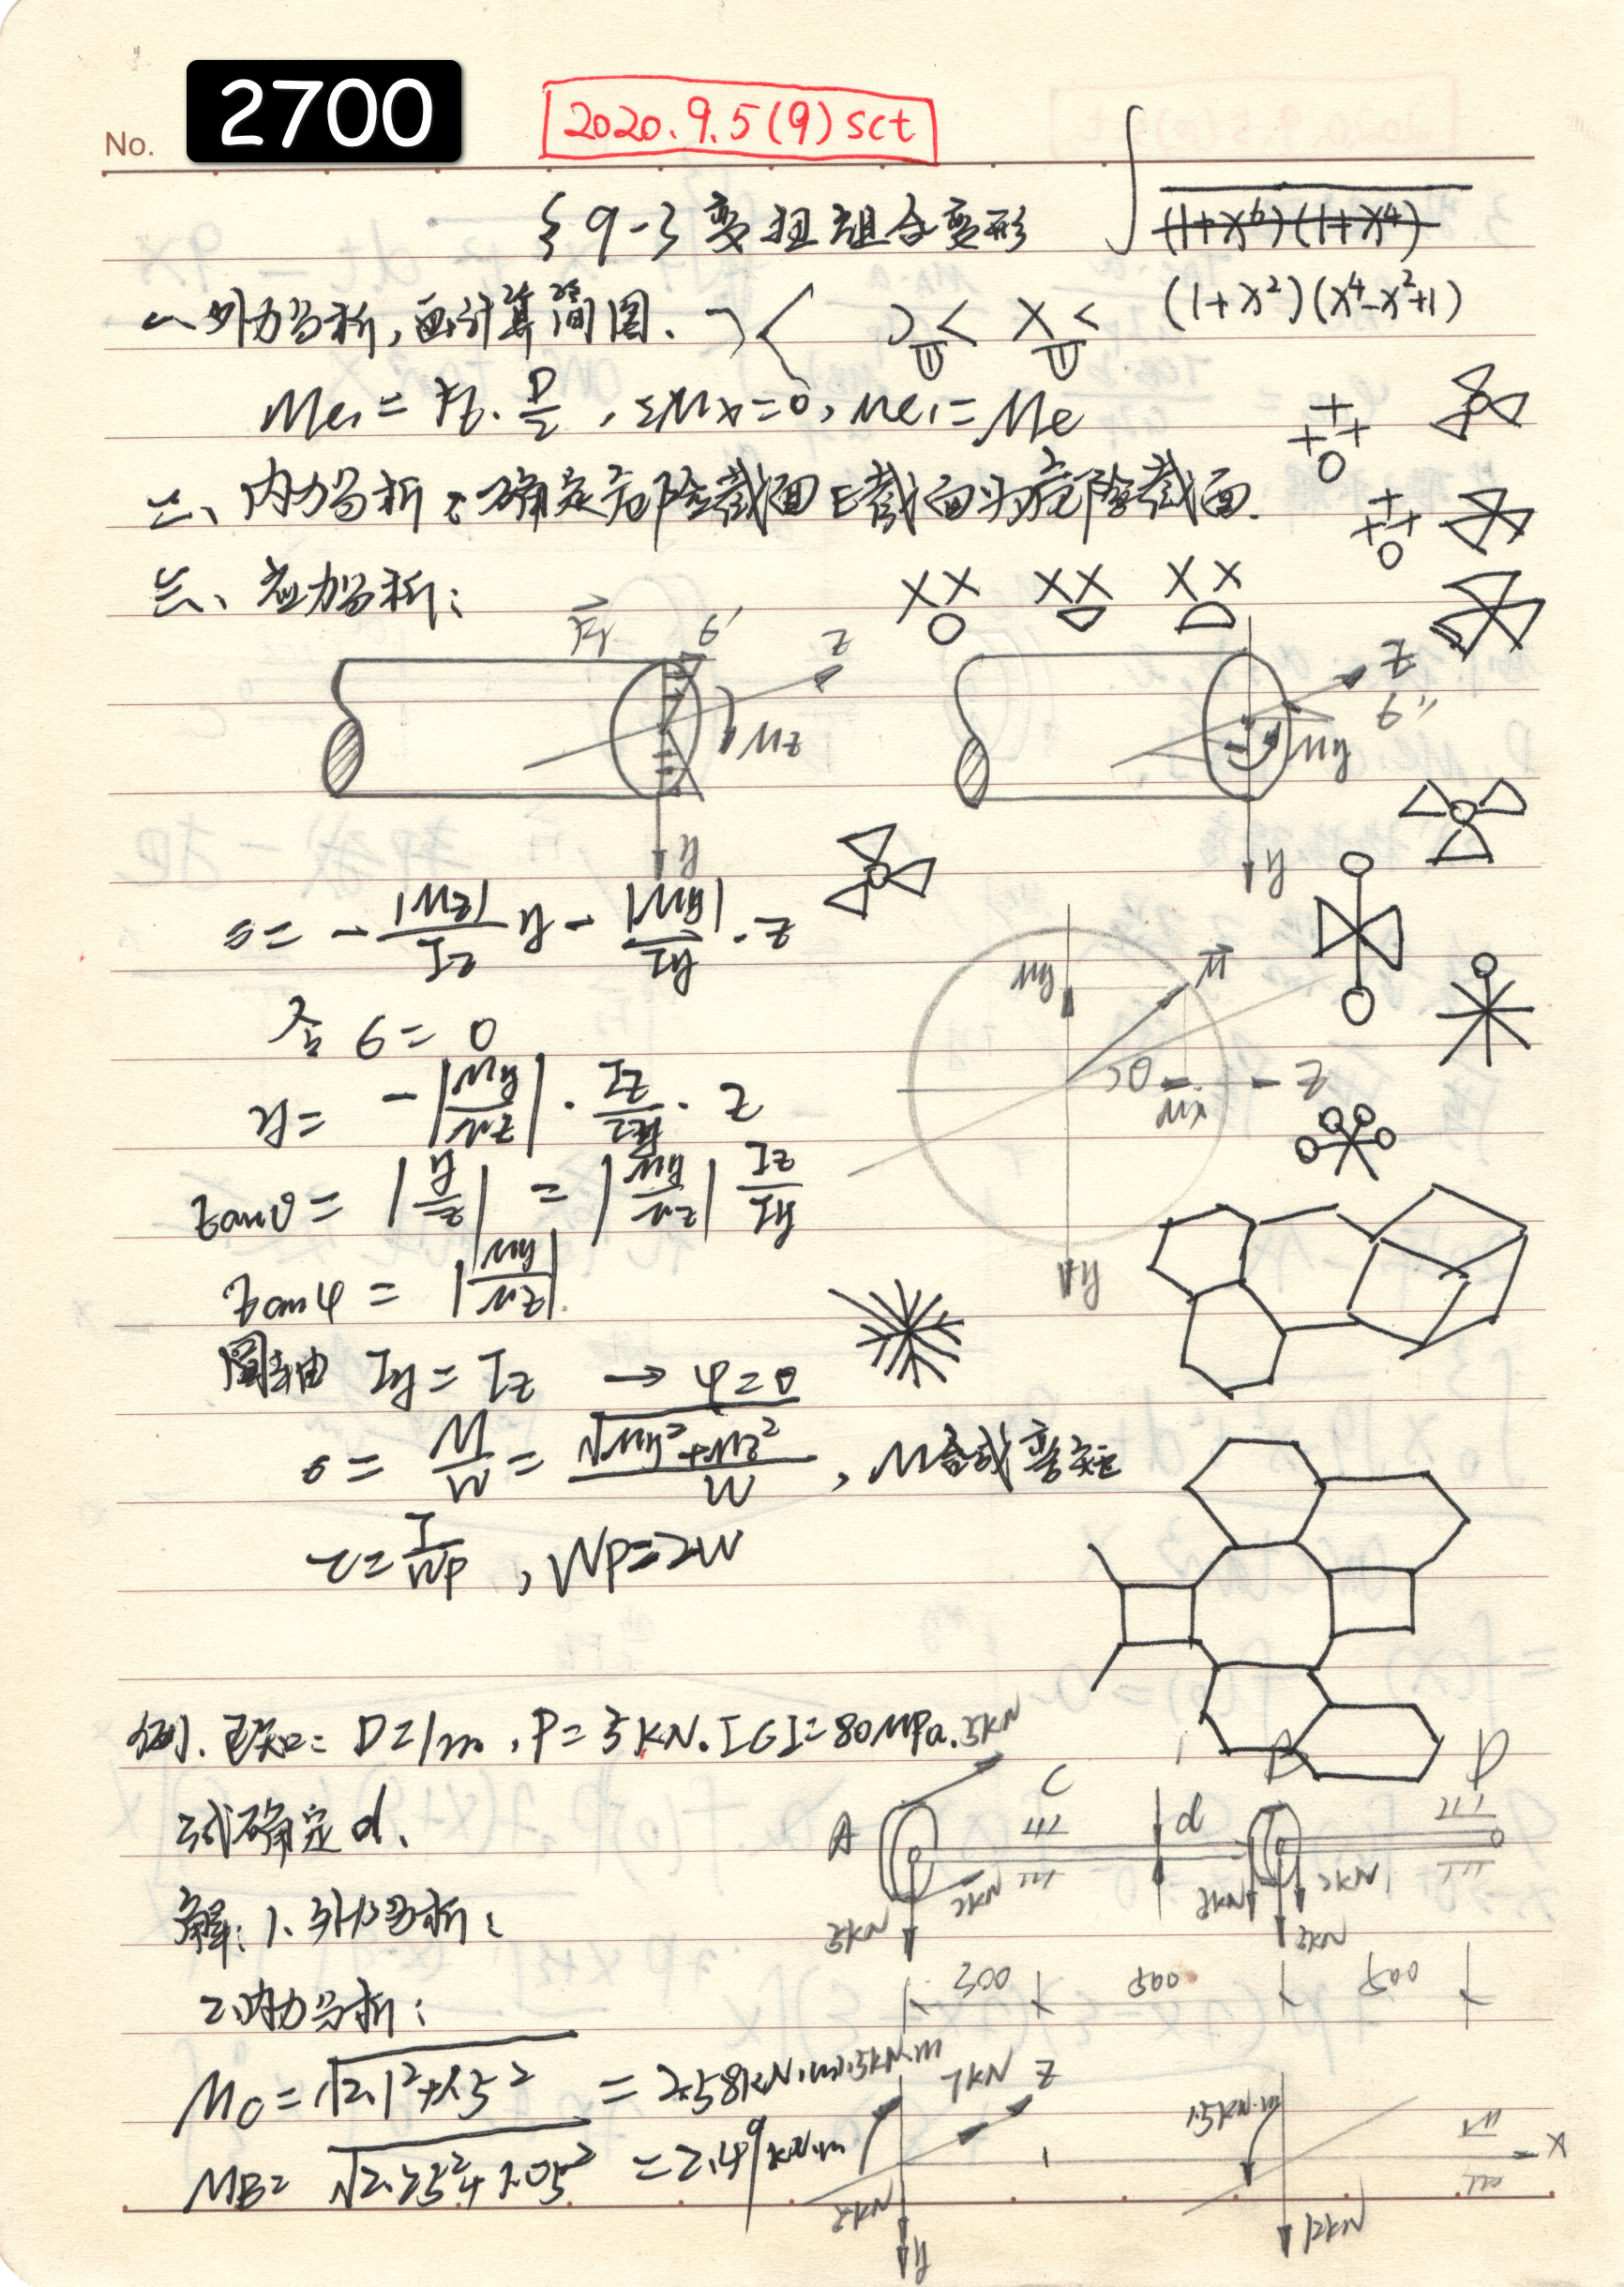 No.
2700
2020.9.5(9)sct
§9-3 弯扭组合变形
∫
(1+x⁶)(1+x⁴)
(1+x²)(x⁴-x²+1)
一、外力分析,画计算简图.
Me₁= Ft·D/2 , ΣMx=0, Me₁=Me
二、内力分析:确定危险截面E截面为危险截面.
三、应力分析:
σ' z
Mz
y
z
σ''
My
y
σ= -|Mz|/Iz y - |My|/Iy · z
My M
令 σ= 0
θ z
y= -|My/Mz| · Iz/Iy · z
tanθ= |y/z| = |My/Mz| Iz/Iy
y
tanφ = |My/Mz|.
圆轴 Iy = Iz → φ=θ
σ = M/W = √My²+Mz²/W , M合成弯矩
τ=T/Wp , Wp=2W
例. 已知: D=1m , P=5KN. [σ]=80MPa. 5KN
试确定d.
A C d B D
2KN 5KN
2KN 2KN 5KN
解: 1.外力分析:
300 500 500
2.内力分析:
Mc = √2.1²+1.5² = 2.58KN·m 1.5KN·m
7KN z
MB= √2.25²+1.05² =2.49KN·m
1.5KN·m
x
5KN
y
12KN